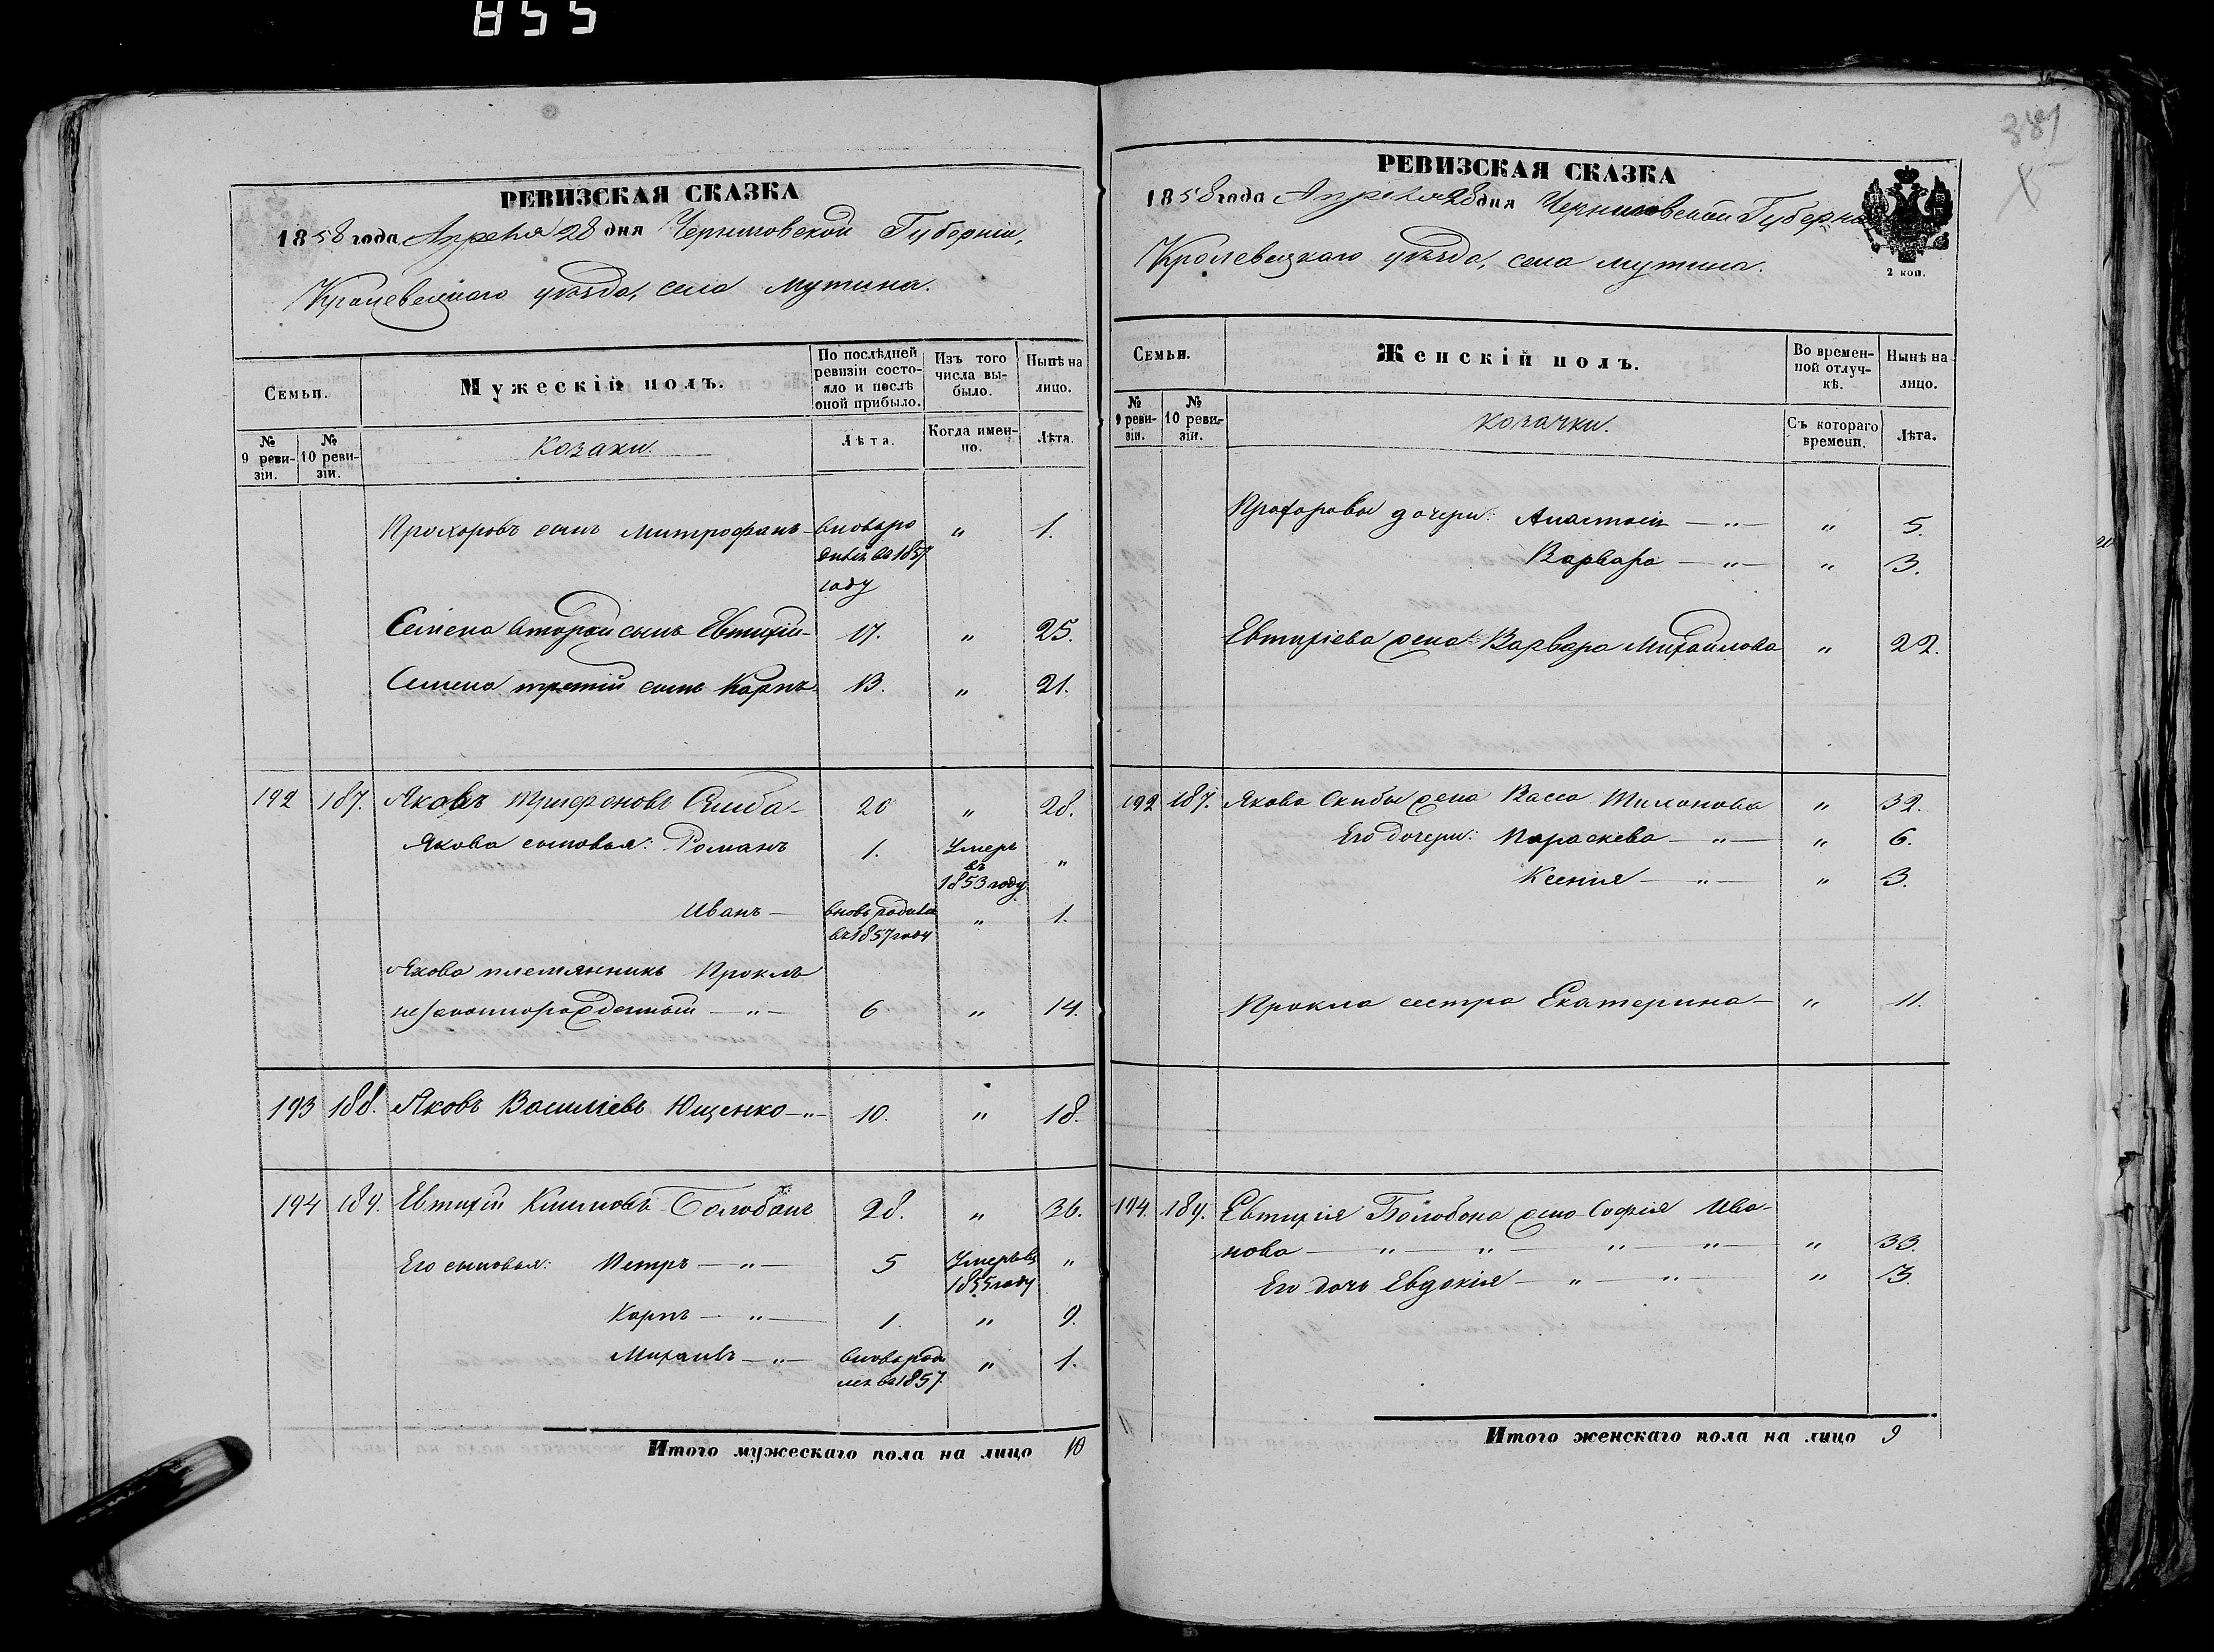 855
387
РЕВИЗСКАЯ СКАЗКА
1858 года Апреля 28 дня Черниговской Губерніи,
Кролевецкаго уѣзда, села Мутина.
Семьи.
Мужескій полъ.
По послѣдней ревизіи состояло и послѣ оной прибыло.
Изъ того числа выбыло.
Нынѣ на лицо.
№ 9 ревизіи.
№ 10 ревизіи.
Козаки.
Лѣта.
Когда именно.
Лѣта.
Прохоровъ сынъ Митрофанъ - вновь ро " 1.
дился въ 1857
году
Семена второй сынъ Евтихій - 17. " 25.
Семена третій сынъ Карпъ 13. " 21.
192 187. Яковъ Трифоновъ Скиба - 20 " 28.
Якова сыновья: Романъ 1. Умеръ въ 1853 году "
Иванъ - вновь родился въ 1857 году " 1.
Якова племянникъ Проклъ
незаконнорожденный - " - 6 " 14.
193 188. Яковъ Василіевъ Ющенко - " - 10. " 18.
194 189. Евтихій Климовъ Болобанъ 28. " 36.
Его сыновья: Петръ - " - 5 Умеръ въ 1855 году "
Карпъ - " - 1. " 9.
Михаилъ - " - вновь роди " 1.
лся въ 1857.
Итого мужескаго пола на лицо 10
РЕВИЗСКАЯ СКАЗКА
1858 года Апреля 28 дня Черниговской Губерніи
Кролевецкаго уѣзда, села Мутина.
2 коп.
Семьи.
Женскій полъ.
Во временной отлучкѣ.
Нынѣ на лицо.
№ 9 ревизіи.
№ 10 ревизіи.
Козачки.
Съ котораго времени.
Лѣта.
Прохоровы дочери: Анастасія - " - " 5.
Варвара - " - " 3.
Евтихіева жена Варвара Михайлова " 22.
192 187. Якова Скибы жена Васса " 32.
Его дочери: Параскева - " - " 6.
Ксенія - " - " 3.
Прокла сестра Екатерина - " 11.
194. 189. Евтихія Болобана жена Софія Ива-
нова - " - " - " - " - " 33.
Его дочь Евдокія - " - " - " 13.
Итого женскаго пола на лицо 9